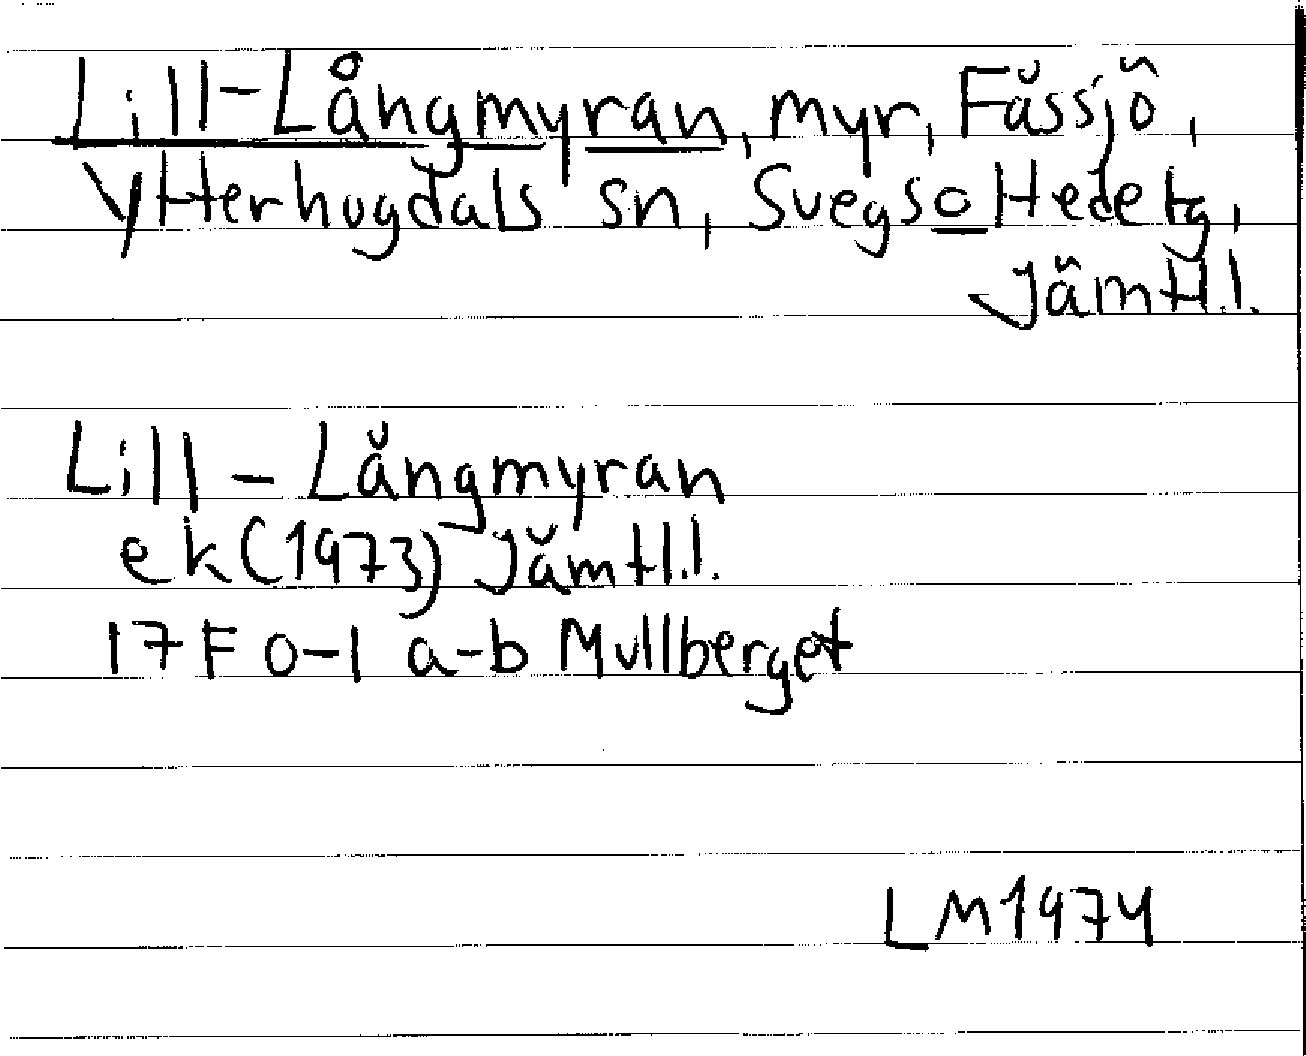 Lill-Långmyran, myr, Fåssjö,
Ytterhogdals sn, Svegs o Hede tg,
Jämtl.l.
Lill-Långmyran
ek (1973) Jämtl.l.
17 F 0-1 a-b Mullberget
LM 1974